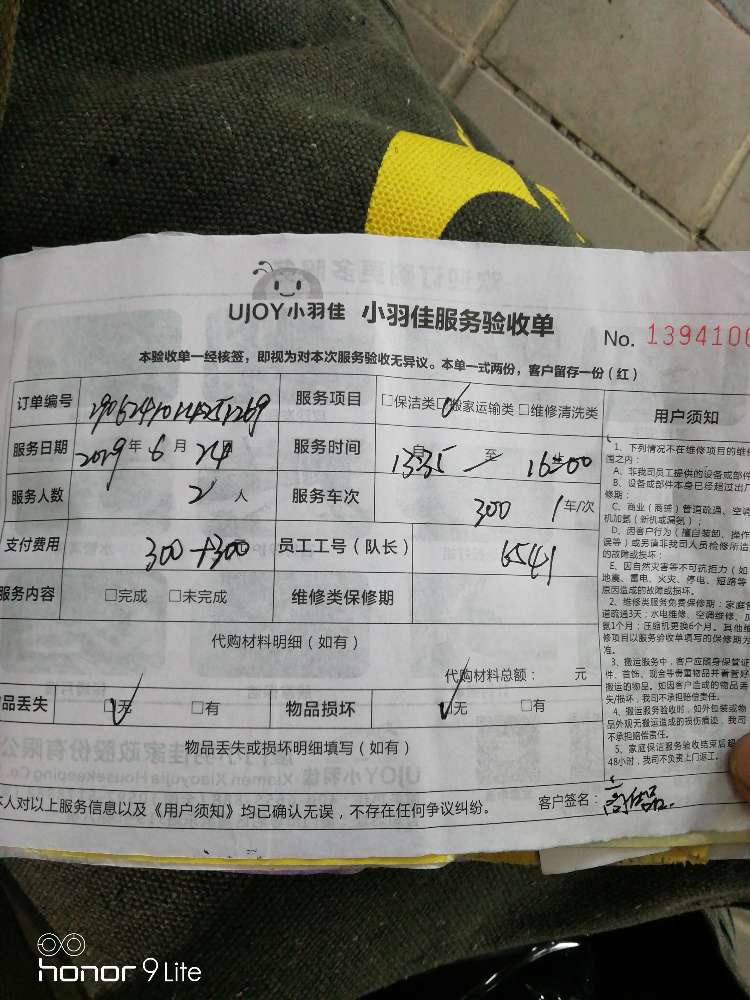 UJOY小羽佳 小羽佳服务验收单 No. 1394100
本验收单一经核签，即视为对本次服务验收无异议。本单一式两份，客户留存一份（红）
订单编号 服务项目 □保洁类 □搬家运输类 □维修清洗类 用户须知
服务日期 2019年6月24日 服务时间 自 1335 至 16:00
服务人数 2人 服务车次 300 1车/次
支付费用 300+300 员工工号（队长） 6541
服务内容 □完成 □未完成 维修类保修期
代购材料明细（如有）
代购材料总额： 元
品丢失 □无 □有 物品损坏 □无 □有
物品丢失或损坏明细填写（如有）
本人对以上服务信息以及《用户须知》均已确认无误，不存在任何争议纠纷。 客户签名：
1、下列情况不在维修项目的维修
围之内：
A、非我司员工提供的设备或部件
B、设备或部件本身已经超过出厂
修期；
C、商业（商铺）管道疏通、空调
机加氨（新机或漏氨）；
D、因客户行为（擅自装卸、操作
误等）或另请非我司人员检修所造
的故障或损坏；
E、因自然灾害等不可抗拒力（如
地震、雷电、火灾、停电、短路等
原因造成的故障或损坏。
2、维修类服务免费保修期：家庭管
道疏通3天；水电维修、空调维修、加
氨1个月；压缩机更换6个月。其他维
修项目以服务验收单填写的保修期为
准。
3、搬运服务中，客户应随身保管证
件、首饰、现金等贵重物品并看管好
搬运的物品。如因客户造成的物品丢
失/损坏，我司不承担赔偿责任。
4、搬运服务验收时，如外包装或物
品外观无搬运造成的损伤痕迹，我司
不承担赔偿责任。
5、家庭保洁服务验收结束后超
48小时，我司不负责上门返工。
honor 9 Lite